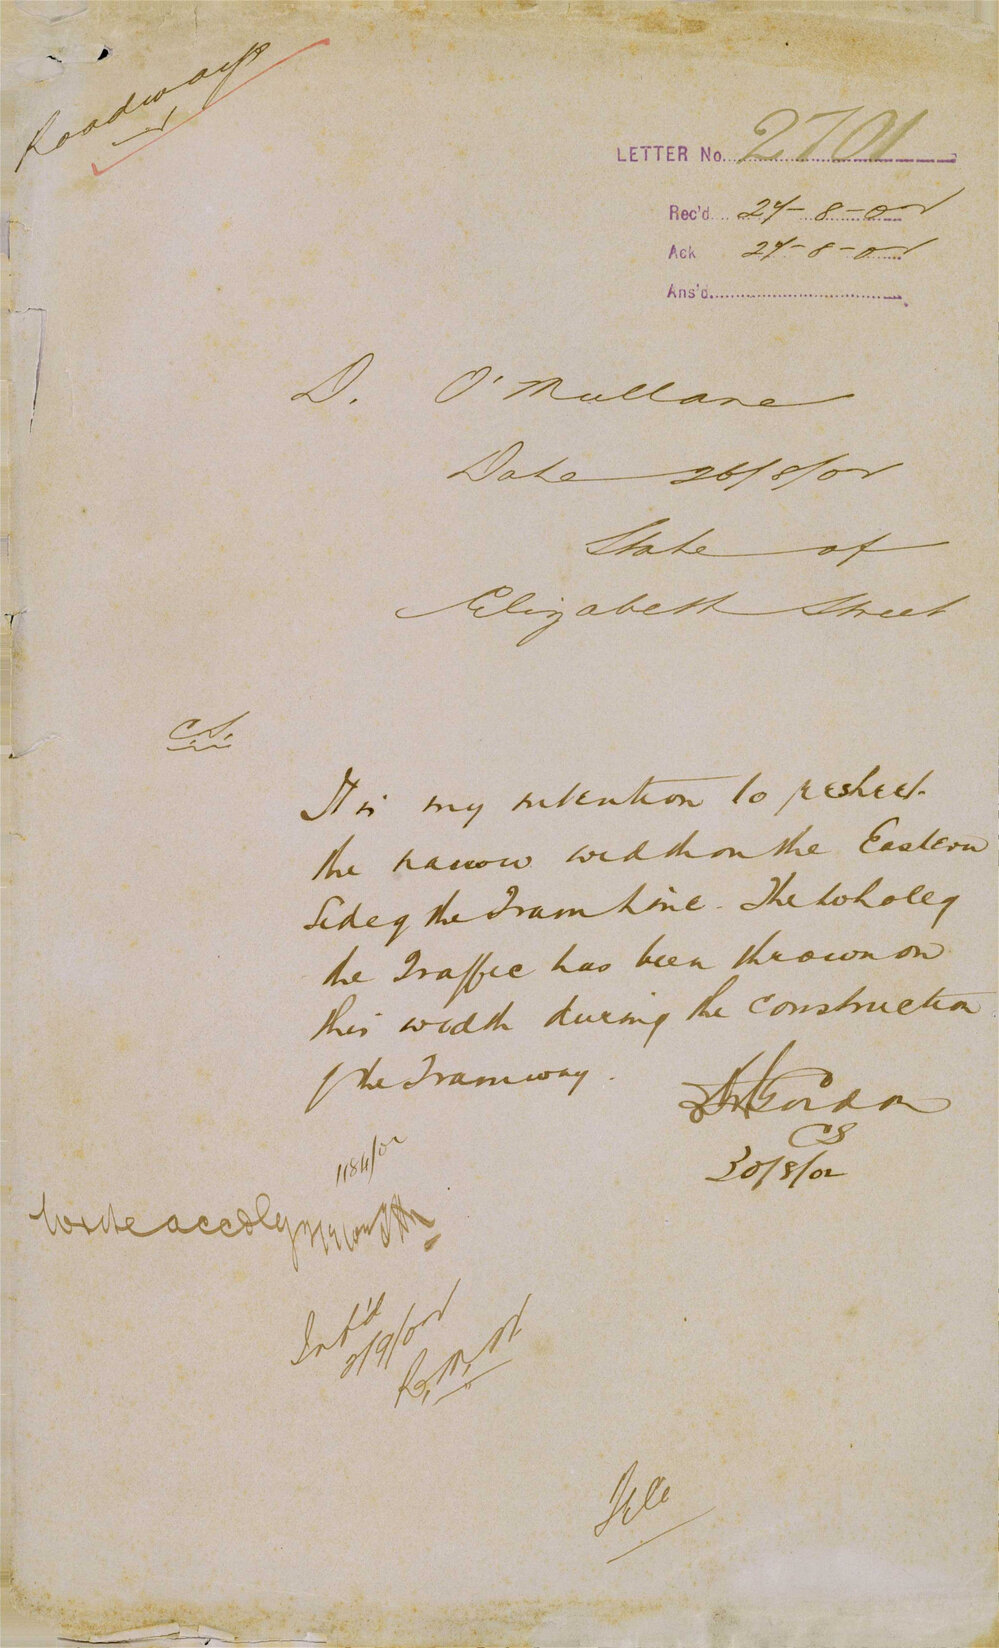 Roadways
LETTER No. 2701
Rec'd. 27-8-02
Ack 27-8-02
Ans'd.
D. O'Mullane
Date 26/8/02
State of
Elizabeth Street
C.S.
It is my intention to resheet
the narrow width on the Eastern
Side of the Tram Line. The whole of
the Traffic has been thrown on
this width during the construction
of the Tramway.
Gordon
CS
30/8/02
1184/02
Write accdly
Int'd
2/9/02
File